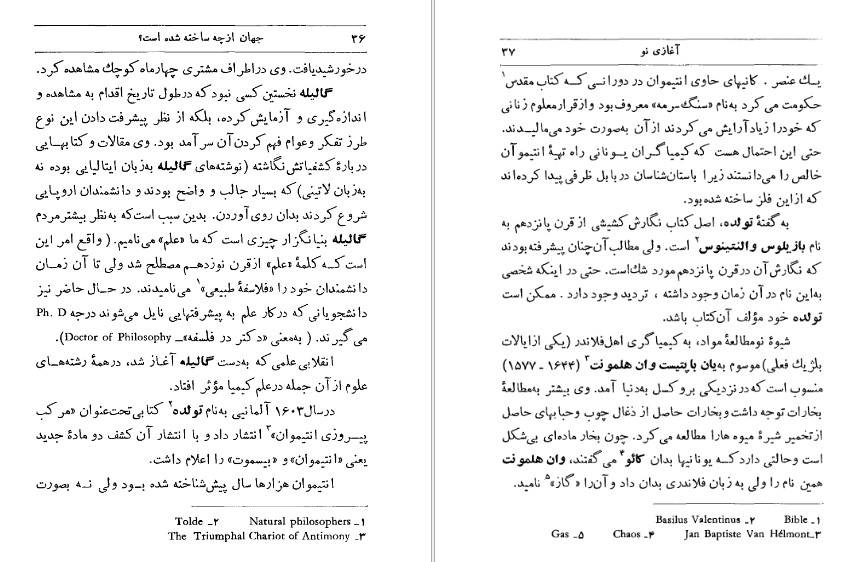 ۳۶ جهان ازچه ساخته شده است؟
درخورشیدیافت. وی دراطراف مشتری چهارماه کوچك مشاهده کرد.
گالیله نخستین کسی نبود که درطول تاریخ اقدام به مشاهده و
اندازه‌گیری و آزمایش کرده، بلکه از نظر پیشرفت دادن این نوع
طرز تفکر وعوام فهم کردن آن سر آمد بود. وی مقالات و کتابهایی
دربارهٔ کشفیاتش نگاشته (نوشته‌های گالیله به‌زبان ایتالیایی بوده نه
به‌زبان لاتینی) که بسیار جالب و واضح بودند و دانشمندان اروپایی
شروع کردند بدان روی آوردن. بدین سبب است‌که به‌نظر بیشترمردم
گالیله بنیانگزار چیزی است که ما «علم» می‌نامیم. ( واقع امر این
است کـه کلمهٔ «علم» ازقرن نوزدهـم مصطلح شد ولی تا آن زمـان
دانشمندان خود را «فلاسفهٔ طبیعی»۱ می‌نامیدند. در حـال حاضر نیز
دانشجویانی که درکار علم به پیشرفتهایی نایل می‌شوند درجه Ph. D
می‌گیرند. ( به‌معنی «دکتر در فلسفه» ـ Doctor of Philosophy).
انقلابی‌علمی که به‌دست گالیله آغاز شد، درهمهٔ رشته‌های
علوم از آن جمله درعلم کیمیا مؤثر افتاد.
درسال۱۶۰۳ آلمانیی به‌نام تولده۲ کتابی‌تحت‌عنوان «مرکب
پیـروزی انتیموان»۳ انتشار داد و با انتشار آن کشف دو مادهٔ جدید
یعنی «انتیموان» و «بیسموت» را اعلام داشت.
انتیموان هزارها سال پیش‌شناخته شده بـود ولی نـه بصورت
۱ـ Natural philosophers ۲ـ Tolde
۳ـ The Triumphal Chariot of Antimony
آغازی نو ۳۷
یـك عنصر . کانیهای حاوی انتیموان در دورانـی کـه کتاب مقدس۱
حکومت می‌کرد به‌نام «سنگ‌سرمه» معروف بود و ازقرار معلوم زنانی
که خودرا زیاد آرایش می‌کردند از آن به‌صورت خود می‌مالیـدند.
حتی این احتمال هست که کیمیا گـران یـونانی راه تهیهٔ انتیموآن
خالص را می‌دانستند زیـرا باستان‌شناسان در بابل ظرفی پیدا کرده‌اند
که از این فلز ساخته شده‌بود.
به گفتهٔ تولده، اصل کتاب نگارش کشیشی از قرن پانزدهم به
نام بازیلوس والنتینوس۲ است. ولی مطالب آن‌چنان پیشرفته‌بودند
که نگارش آن درقرن پانزدهم‌مورد شك‌است. حتی در اینکه شخصی
به‌این نام در آن زمان وجود داشته ، تردید وجود دارد . ممکن است
تولده خود مؤلف آن‌کتاب باشد.
شیوهٔ نومطالعهٔ مواد، به کیمیاگری اهل‌فلاندر (یکی ازایالات
بلژیك فعلی) موسوم به‌یان باپتیست وان هلمونت۳ (۱۶۴۴ ـ ۱۵۷۷)
منسوب است که‌درنزدیکی بروکسل به‌دنیا آمد. وی بیشتر به‌مطالعهٔ
بخارات توجه داشت و بخارات حاصل از ذغال چوب وحبابهای حاصل
ازتخمیر شیرهٔ میوه هارا مطالعه می‌کرد. چون بخار ماده‌ای بی‌شکل
است وحالتی دارد کـه یونانیها بدان کائو۴ می‌گفتند، وان هلمونت
همین نام را ولی به زبان فلاندری بدان داد و آن‌را «گاز»۵ نامید.
۱ـ Bible ۲ـ Basilus Valentinus
۳ـ Jan Baptiste Van Hélmont ۴ـ Chaos ۵ـ Gas